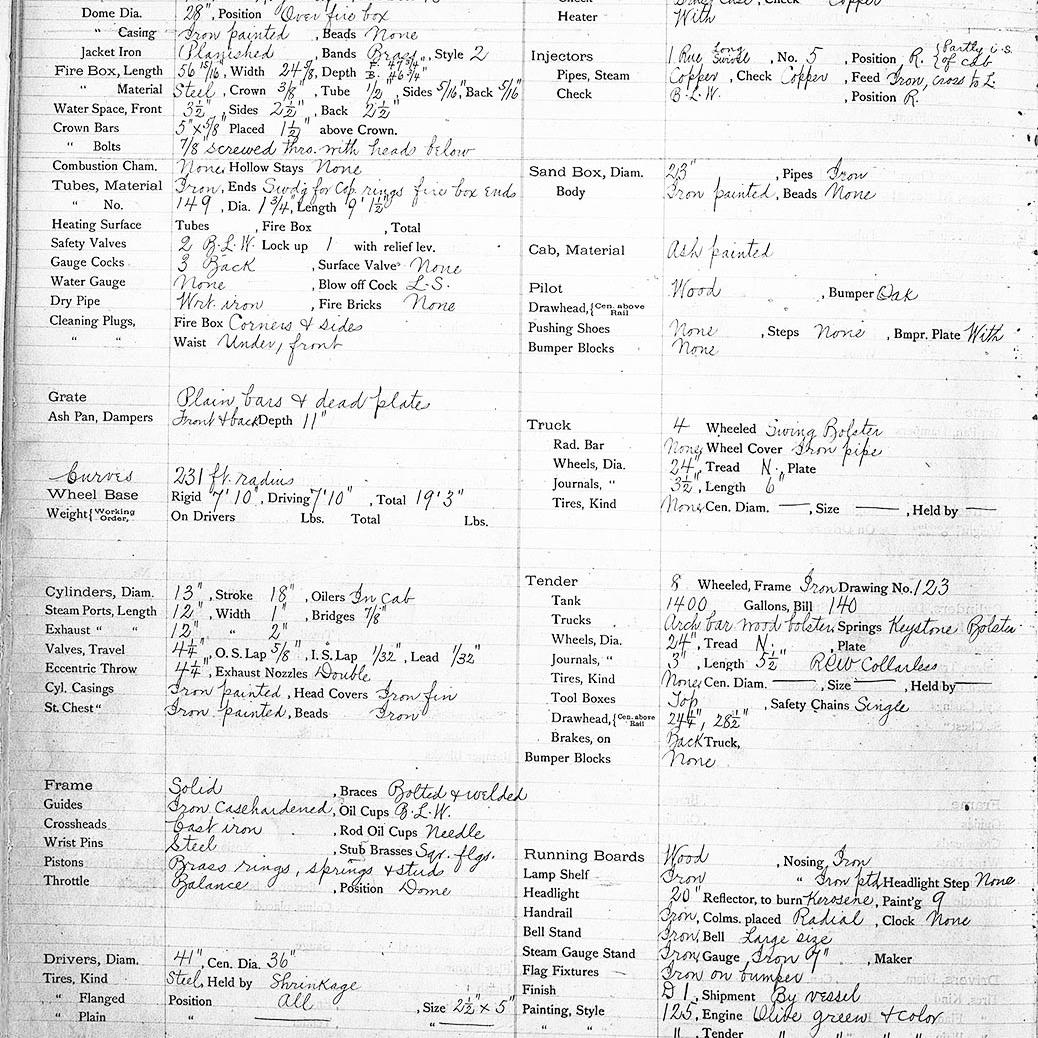 Dome Dia. 28", Position Over fire box
" Casing Iron painted , Beads None
Jacket Iron Planished , Bands Brass, Style 2
Fire Box, Length 56 15/16", Width 24 5/8", Depth F. 47 3/4" B. 46 3/4"
" Material Steel, Crown 3/8", Tube 1/2, Sides 5/16," Back 5/16"
Water Space, Front 3 1/2", Sides 2 1/2", Back 2 1/2"
Crown Bars 5" x 5/8" Placed 1 1/2" above Crown.
" Bolts 7/8" Screwed thro. with heads below
Combustion Cham. None, Hollow Stays None
Tubes, Material Iron, Ends Swdg for Cop. rings fire box ends
" No. 149 , Dia. 1 3/4", Length 9' 1 1/2"
Heating Surface Tubes , Fire Box , Total
Safety Valves 2 B.L.W. Lock up 1 with relief lev.
Gauge Cocks 3 Back , Surface Valve None
Water Gauge None , Blow off Cock L.S.
Dry Pipe Wrt. iron , Fire Bricks None
Cleaning Plugs, Fire Box Corners & sides
" " Waist Under, front
Grate Plain bars & dead plate
Ash Pan, Dampers Front & back Depth 11"
Curves 231 ft. radius
Wheel Base Rigid 7' 10", Driving 7' 10" , Total 19' 3"
Weight { Working Order, On Drivers Lbs. Total Lbs.
Cylinders, Diam. 13", Stroke 18", Oilers In cab
Steam Ports, Length 12", Width 1" , Bridges 7/8"
Exhaust " " 12" " 2"
Valves, Travel 4 1/4", O. S. Lap 5/8", I. S. Lap 1/32", Lead 1/32"
Eccentric Throw 4 1/4", Exhaust Nozzles Double
Cyl. Casings Iron painted , Head Covers Iron fin
St. Chest " Iron painted, Beads Iron
Frame Solid , Braces Bolted & welded
Guides Iron Casehardened, Oil Cups B.L.W.
Crossheads Cast iron , Rod Oil Cups Needle
Wrist Pins Steel , Stub Brasses Sqr. flgs.
Pistons Brass rings, springs & studs
Throttle Balance , Position Dome
Drivers, Diam. 41", Cen. Dia. 36"
Tires, Kind Steel, Held by Shrinkage
" Flanged Position All , Size 2 1/2" x 5"
" Plain " "
Copper
Heater With
Injectors 1 Rue Long Swivel , No. 5 , Position R. { Partly i.s. of cab
Pipes, Steam Copper , Check Copper , Feed Iron, cross to L.
Check B.L.W. , Position R.
Sand Box, Diam. 23" , Pipes Iron
Body Iron painted, Beads None
Cab, Material Ash painted
Pilot Wood , Bumper Oak
Drawhead, { Cen. above Rail
Pushing Shoes None , Steps None , Bmpr. Plate With
Bumper Blocks None
Truck 4 Wheeled Swing Bolster
Rad. Bar None, Wheel Cover Iron pipe
Wheels, Dia. 24", Tread N., Plate
Journals, " 3 1/2", Length 6"
Tires, Kind None, Cen. Diam. , Size , Held by
Tender 8 Wheeled, Frame Iron Drawing No. 123
Tank 1400 Gallons, Bill 140
Trucks Arch bar wood bolster, Springs Keystone Bolster
Wheels, Dia. 24", Tread N. , Plate
Journals, " 3", Length 5 1/2" Collarless
Tires, Kind None, Cen. Diam. , Size , Held by
Tool Boxes Top , Safety Chains Single
Drawhead, { Cen. above Rail 24 1/4", 28 1/2"
Brakes, on Back Truck,
Bumper Blocks None
Running Boards Wood , Nosing Iron
Lamp Shelf Iron " Iron ptd, Headlight Step None
Headlight 20" Reflector, to burn Kerosene, Paint'g 9
Handrail Iron, Colms. placed Radial , Clock None
Bell Stand Iron, Bell Large size
Steam Gauge Stand Iron, Gauge Iron , Maker
Flag Fixtures Iron on bumper
Finish D 1, Shipment By vessel
Painting, Style 125, Engine Olive green & color
" " " , Tender " " "